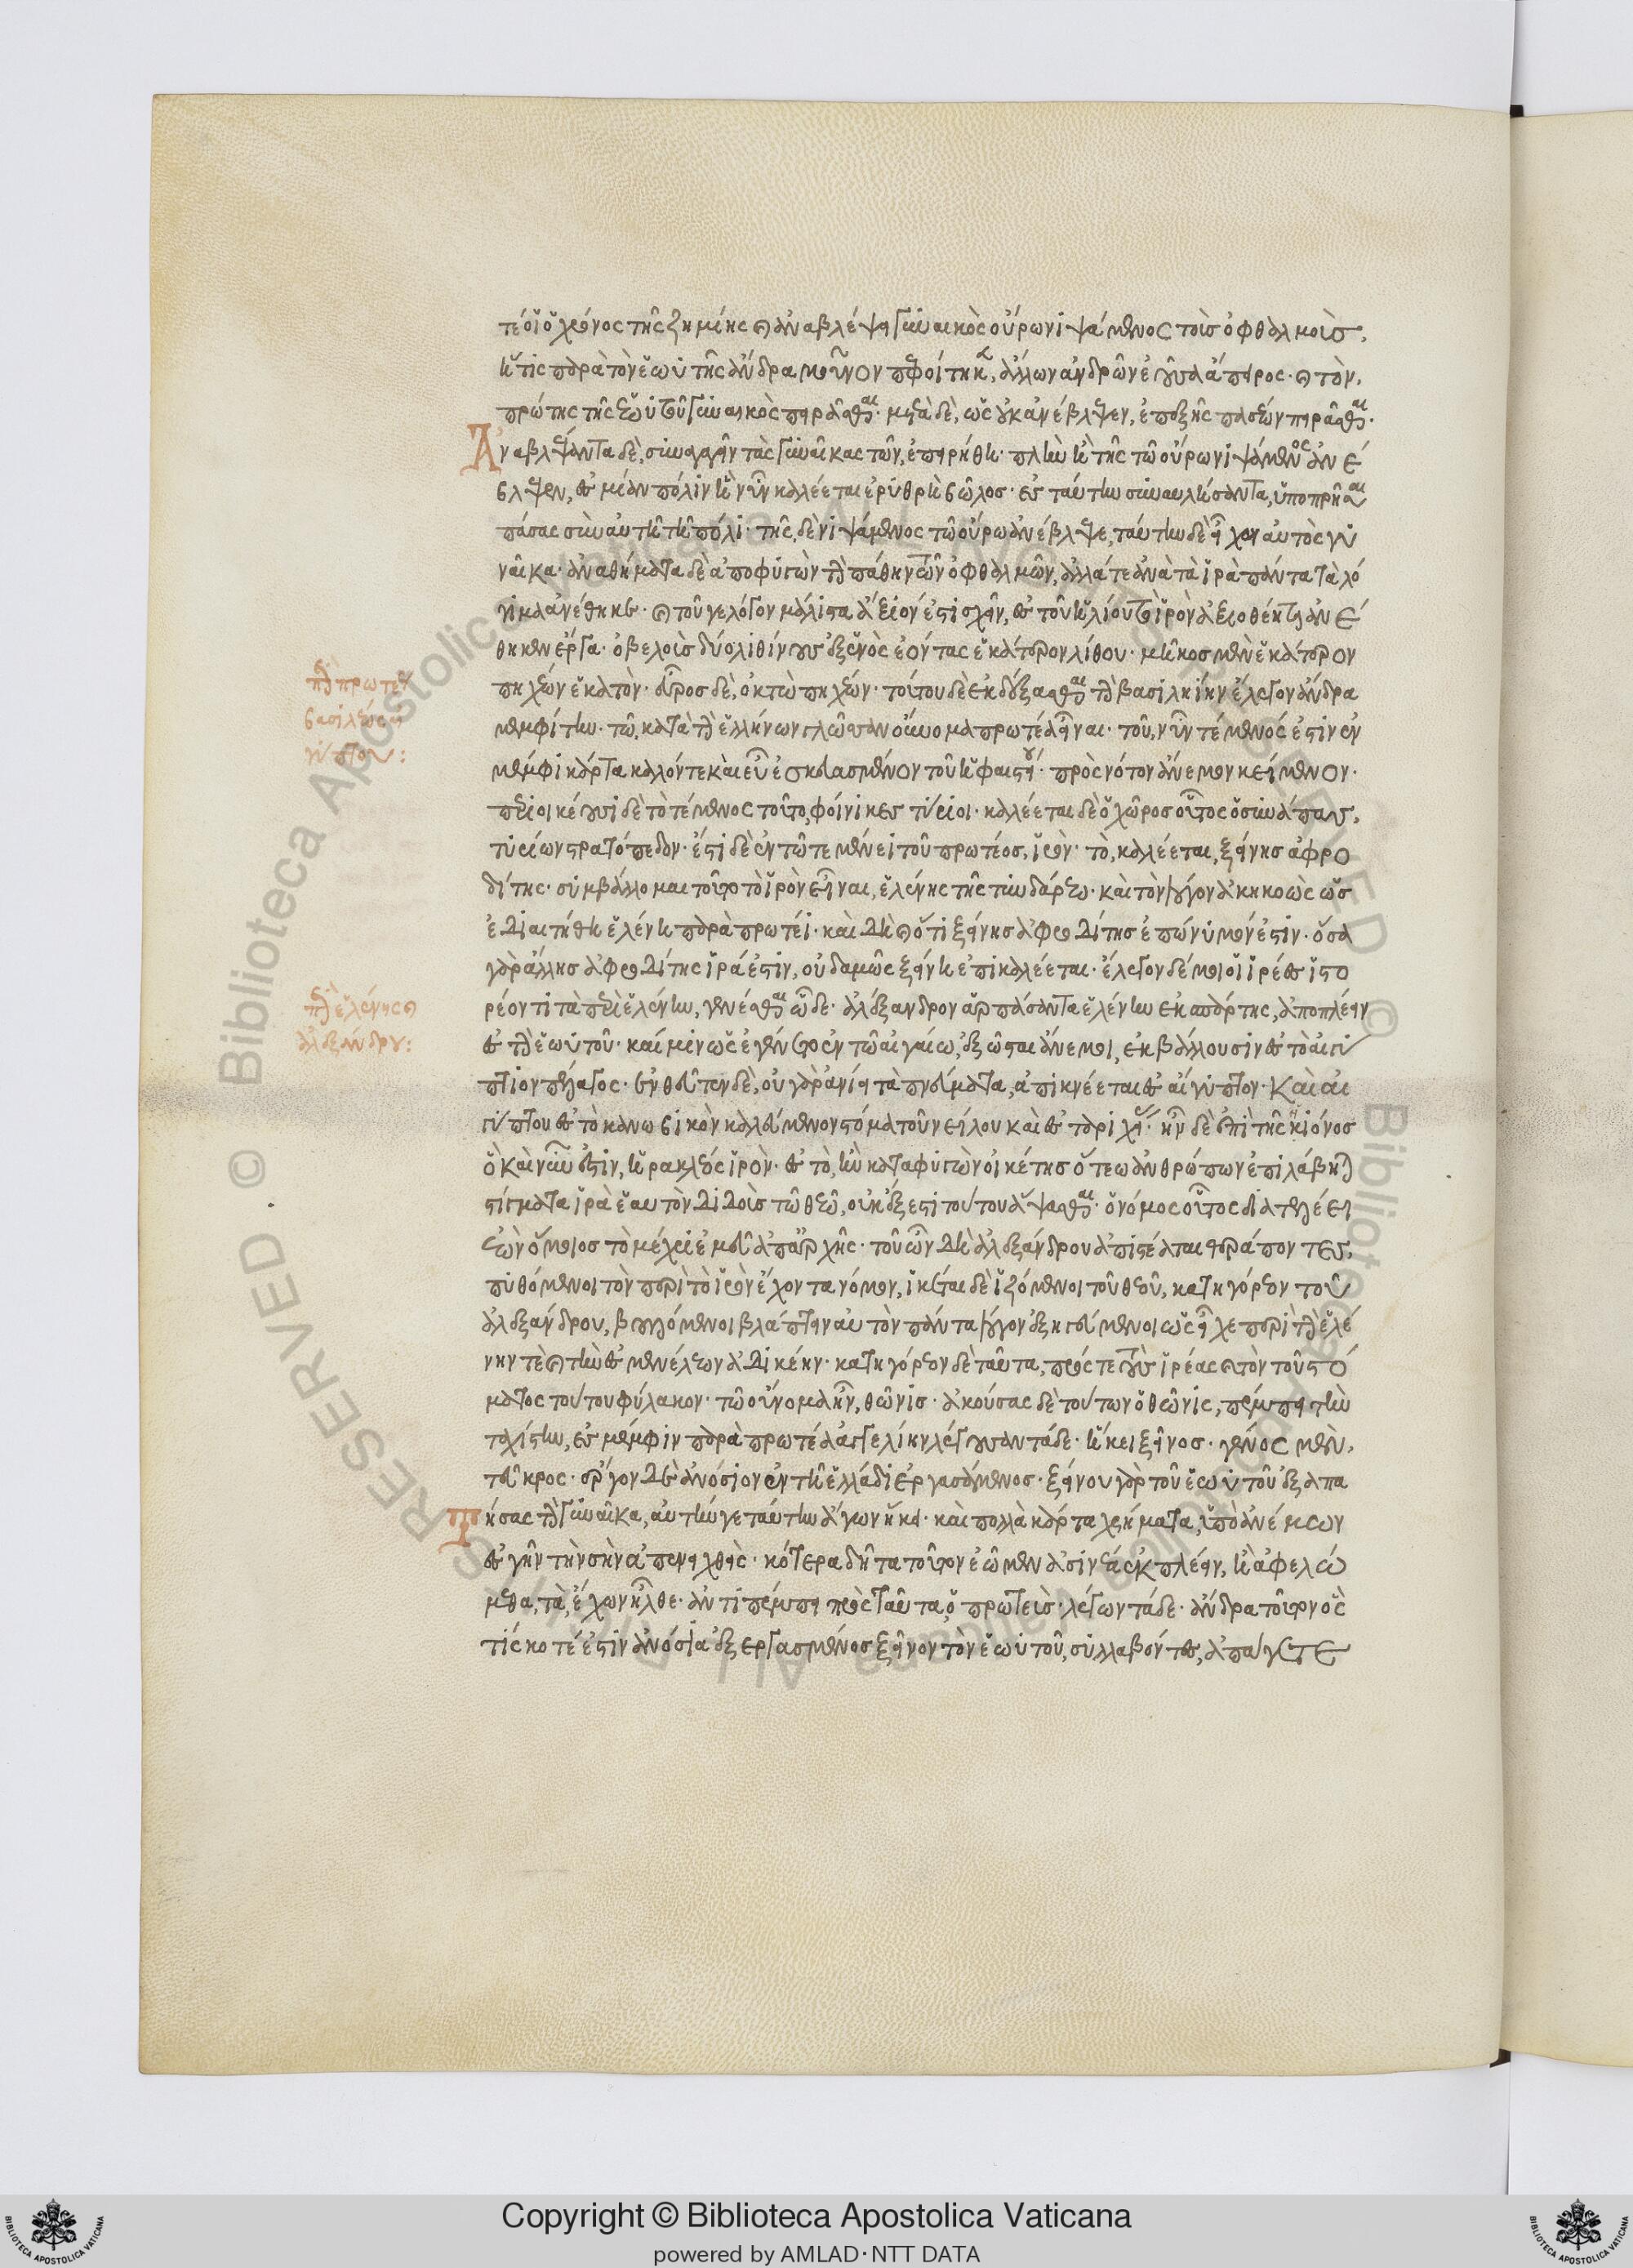 τέ οἱ ὁ χρόνος τῆς ζημίης καὶ ἀναβλέψει γυναικὸς οὔρω νιψάμενος τοὺς ὀφθαλμοὺς,
ἥτις παρὰ τὸν ἑωυτῆς ἄνδρα μοῦνον πεφοίτηκε, ἄλλων ἀνδρῶν ἐοῦσα ἄπειρος· καὶ τὸν,
πρώτης τῆς ἑωυτοῦ γυναικὸς πειρᾶσθαι· μετὰ δὲ, ὡς οὐκ ἀνέβλεψεν, ἐπεξῆς πασέων πειρᾶσθαι·
Ἀναβλέψαντα δὲ, συναγαγεῖν τὰς γυναῖκας τῶν, ἐπειρήθη· πλὴν ἢ τῆς τῶ οὔρω νιψάμενος ἀνέ
βλεψεν, ἐς μίαν πόλιν ἣ νῦν καλέεται ἐρυθρὴ βῶλος· ἐς ταύτην συναυλήσαντα, ὑποπρῆσαι
πάσας σὺν αὐτῆ τῆ πόλι· τῆς δὲ νιψάμενος τῶ οὔρω ἀνέβλεψε, ταύτην δὲ εἶχεν αὐτὸς γυ
ναῖκα· ἀναθήματα δὲ ἀποφυγὼν τὴν πάθην τῶν ὀφθαλμῶν, ἄλλα τε ἀνὰ τὰ ἱρὰ πάντα τὰ λό
γιμα ἀνέθηκε· καὶ τοῦ γε λόγον μάλιστα ἄξιόν ἐστι σχεῖν, ἐς τοῦ ἡλίου τὸ ἱρὸν ἀξιοθέητα ἀνέ
θηκεν ἔργα· ὀβελοὺς δύο λιθίνους ἐξ ἑνὸς ἐόντας ἑκάτερον λίθου· μῆκος μὲν ἑκάτερον
πηχέων ἑκατὸν· εὖρος δὲ, ὀκτὼ πηχέων· τούτου δὲ ἐκδέξασθαι τὴν βασιληίην ἔλεγον ἄνδρα
μεμφίτην· τῶ, κατὰ τὴν ἑλλήνων γλῶσσαν οὔνομα πρωτέα εἶναι· τοῦ, νῦν τέμενός ἐστιν ἐν
μέμφι κάρτα καλόν τε καὶ εὖ ἐσκευασμένον τοῦ ἡφαιστείου· πρὸς νότον ἄνεμον κείμενον·
περιοικέουσι δὲ τὸ τέμενος τοῦτο, φοίνικες τύριοι· καλέεται δὲ ὁ χῶρος οὗτος ὁ συνάπας,
τυρίων στρατόπεδον· ἔστι δὲ ἐν τῶ τεμένει τοῦ πρωτέος, ἱρὸν· τὸ, καλέεται, ξείνης ἀφρο
δίτης· συμβάλλομαι τοῦτο τὸ ἱρὸν εἶναι, ἑλένης τῆς τυνδάρεω· καὶ τὸν λόγον ἀκηκοὼς ὡς
ἐδιαιτήθη ἑλένη παρὰ πρωτέϊ· καὶ δὴ καὶ ὅτι ξείνης ἀφροδίτης ἐπώνυμόν ἐστιν· ὅσα
γὰρ ἄλλης ἀφροδίτης ἱρά ἐστιν, οὐδαμῶς ξείνη ἐπικαλέεται· ἔλεγον δέ μοι οἱ ἱρέες ἱστο
ρέοντι τὰ περὶ ἑλένην, γενέσθαι ὧδε· ἀλέξανδρον ἁρπάσαντα ἑλένην ἐκ σπάρτης, ἀποπλέειν
ἐς τὴν ἑωυτοῦ· καί μιν ὡς ἐγένετο ἐν τῶ αἰγαίω, ἐξῶσται ἄνεμοι, ἐκβάλλουσιν ἐς τὸ αἰγύ
πτιον πέλαγος· ἐνθεῦτεν δὲ, οὐ γὰρ ἀνίει τὰ πνεύματα, ἀπικνέεται ἐς αἴγυπτον· καὶ αἰ
γύπτου ἐς τὸ κανωβικὸν καλεύμενον στόμα τοῦ νείλου καὶ ἐς ταριχείας· ἦν δὲ ἐπὶ τῆς ἠιόνος
ὃ καὶ νῦν ἐστιν, ἡρακλέος ἱρὸν· ἐς τὸ, ἢν καταφυγὼν οἰκέτης ὅτεω ἀνθρώπων ἐπιλάβηται
στίγματα ἱρὰ ἑαυτὸν διδοὺς τῶ θεῶ, οὐκ ἔξεστι τούτου ἅψασθαι· ὁ νόμος οὗτος διατελέει
ἐὼν ὅμοιος τὸ μέχρι ἐμεῦ ἀπ' ἀρχῆς· τοῦ ὦν δὴ ἀλεξάνδρου ἀπιστέαται θεράποντες,
πυθόμενοι τὸν περὶ τὸ ἱρὸν ἔχοντα νόμον, ἱκέται δὲ ἱζόμενοι τοῦ θεοῦ, κατηγόρεον τοῦ
ἀλεξάνδρου, βουλόμενοι βλάπτειν αὐτὸν πάντα λόγον ἐξηγεύμενοι ὡς εἶχε περὶ τὴν ἑλέ
νην τὲ καὶ τὴν ἐς μενέλεων ἀδικίην· κατηγόρεον δὲ ταῦτα, πρός τε τοὺς ἱρέας καὶ τὸν τοῦ στό
ματος τούτου φύλακον· τῶ οὔνομα ἦν, θῶνις· ἀκούσας δὲ τούτων ὁ θῶνις, πέμπει τὴν
ταχίστην, ἐς μέμφιν παρὰ πρωτέα ἀγγελίην λέγουσαν τάδε· ἥκει ξεῖνος· γένος μὲν,
τεῦκρος· ἔργον δὲ ἀνόσιον ἐν τῆ ἑλλάδι ἐργασάμενος· ξείνου γὰρ τοῦ ἑωυτοῦ ἐξαπα
τήσας τὴν γυναῖκα, αὐτήν γε ταύτην ἄγων ἥκει· καὶ πολλὰ κάρτα χρήματα, ὑπὸ ἀνέμων
ἐς γῆν τὴν σὴν ἀπενειχθεὶς· κότερα δῆτα τοῦτον ἐῶμεν ἀσινέα ἐκπλέειν, ἢ ἀφελώ
μεθα, τὰ, ἔχων ἦλθε· ἀντιπέμπει πρὸς ταῦτα, ὁ πρωτεὺς· λέγων τάδε· ἄνδρα τοῦτον ὃς
τίς κοτέ ἐστιν ἀνόσια ἐξεργασμένος ξεῖνον τὸν ἑωυτοῦ, συλλαβόντες, ἀπάγετε
περὶ πρωτέως
βασιλέως αἰ
γύπτου:
περὶ ἑλένης καὶ
ἀλεξάνδρου:
© Biblioteca Apostolica Vaticana
Copyright © Biblioteca Apostolica Vaticana
powered by AMLAD·NTT DATA